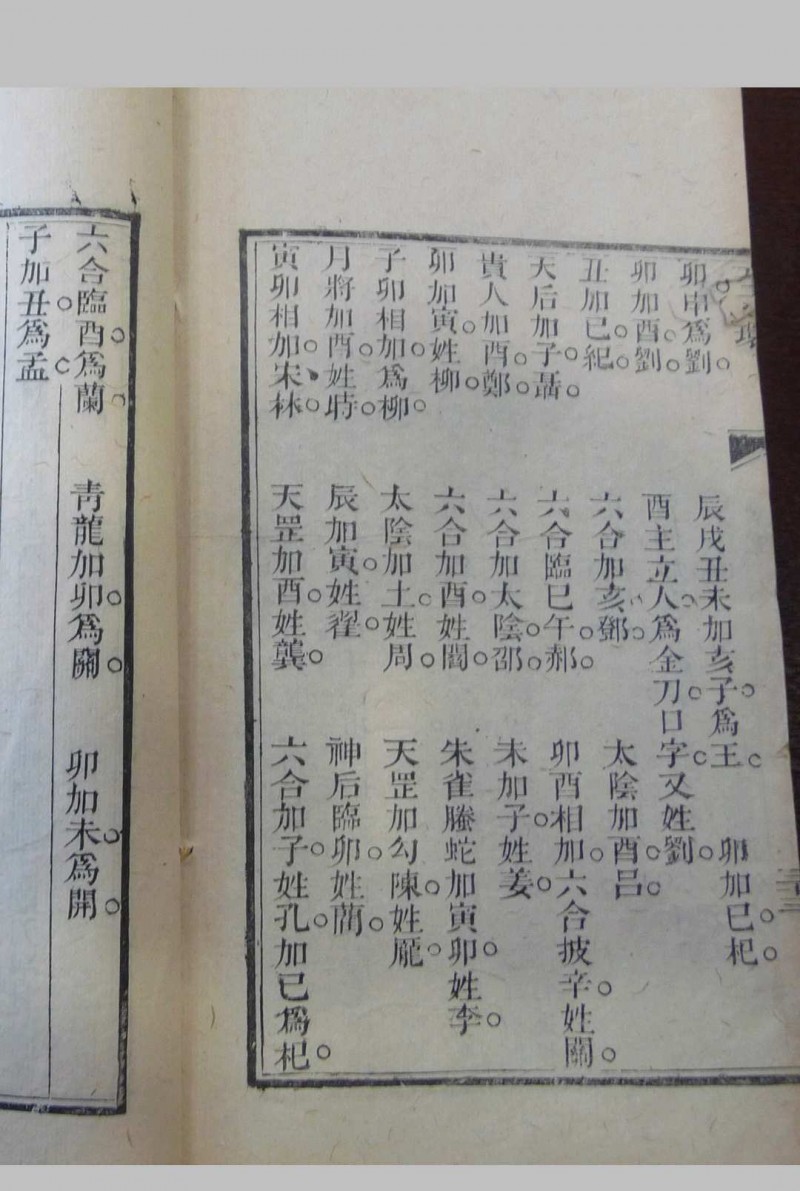 卯申爲劉。　辰戌丑未加亥子爲王。　卯加巳杞。
卯加酉劉。　酉主立人爲金刀口字又姓劉。
丑加巳紀。　六合加亥鄧。　太陰加酉呂。
天后加子聶。　六合臨巳午郝。　卯酉相加六合披辛姓關。
貴人加酉鄭。　六合加太陰邵。　未加子姓姜。
卯加寅姓柳。　六合加酉姓閻。　朱雀螣蛇加寅卯姓李。
子卯相加爲柳。　太陰加土姓周。　天罡加勾陳姓龐。
月將加酉姓時。　辰加寅姓翟。　神后臨卯姓藺。
寅卯相加宋林。　天罡加酉姓龔。　六合加子姓孔加巳爲杞。
六合臨酉爲蘭。　青龍加卯爲關。　卯加未爲開。
子加丑爲孟。